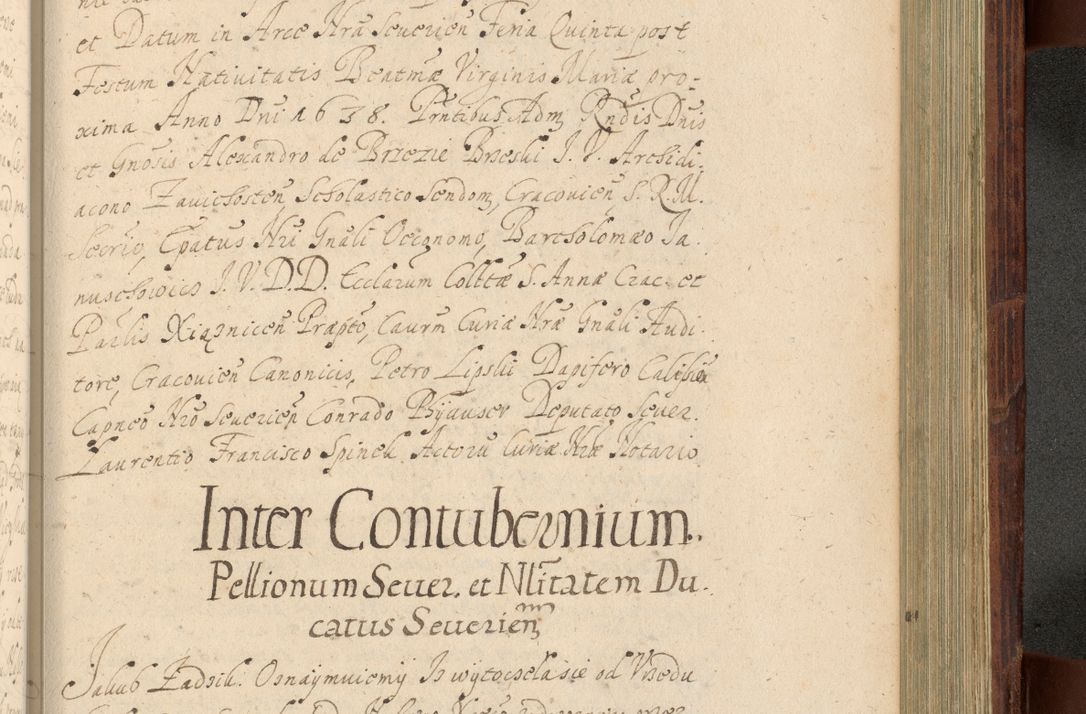 et Datum in Arce Nrã Seuerien̄ Feria Quinta post
Festum Natiuitatis Beatmæ Virginis Mariæ pro-
xima Anno Dni 1638. Prntibus Adm Rndis Dnis
et Gnosis Alexandro de Brzezie Brzeski J. V. Archidi-
acono Zauichosten̄ Scholastico Sendom, Cracouien̄ S. R. M.
Secrio, Epatus Nri Gnali Oeconomo, Bartholomæo Ja-
nuschowicz J. V. D. D. Ecclarum Colltæ S. Annæ Crac. et
Parlis Xiąznicen̄ Præpto, Caurm Curiæ Nræ Gnali Audi-
tore, Cracouien̄ Canonicis, Petro Lipski Dapifero Calisien̄
Capneo Nro Seuerien̄ Conrado Phijauser Deputato Seuer.
Laurentio Francisco Spinek Actoru Curiæ Nræ Notario
Inter Contubernium.
Pellionum Seuer. et Nlitatem Du-
catus Seuerien̄
Jakub Zadzik. Oznaymuiemy Js wytoczela sie od Vrzedu